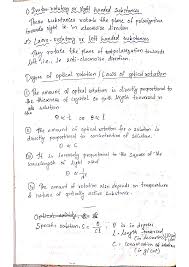 i) Dextro-rotating or right handed substances
These substances rotate the plane of polarization
towards right ie in clockwise direction
ii) Laevo-rotating or left handed substances
They rotate the plane of polarization towards
left i.e. in anti-clockwise direction.
Degree of optical rotation | Laws of optical rotation
① The amount of optical rotation is directly proportional
to the thickness of crystal or path length traversed in
the solution
θ ∝ t or θ ∝ l
② The amount of optical rotation for a solution is
directly proportional to concentration of solution.
θ ∝ C
③ It is inversely proportional to the square of the
wavelength of light used
θ ∝ 1/λ²
④ The amount of rotation also depends on temperature
& nature of optically active substance.
Specific rotation S = θ/lC
θ is in degree
l - length traversed
C = concentration of solution